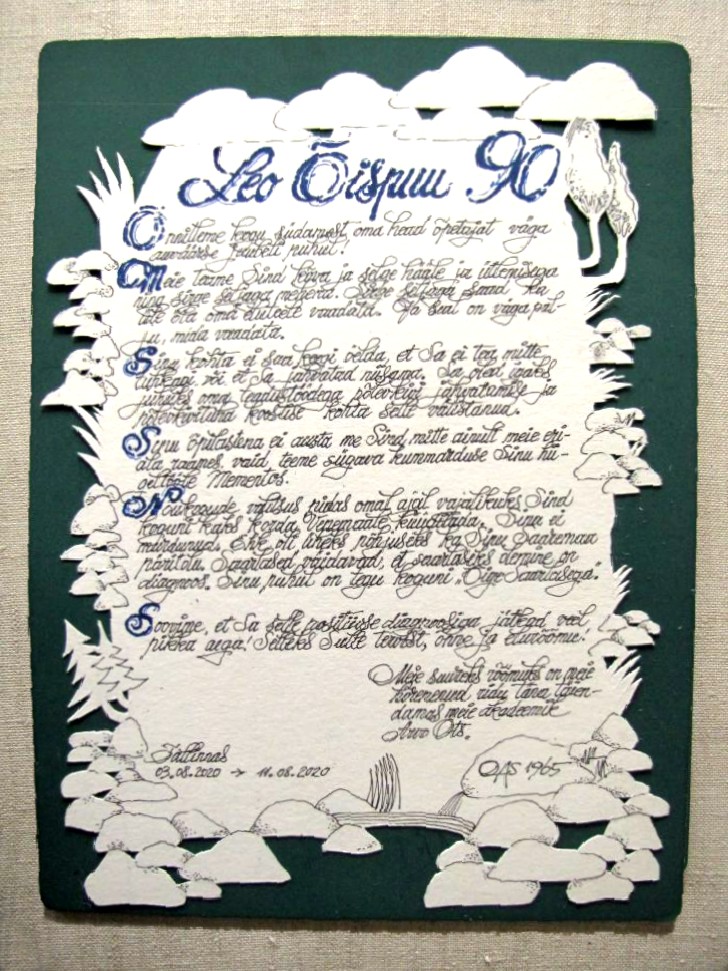 Leo Õispuu 90
Õnnitleme kogu südamest oma head õpetajat väga
auväärse juubeli puhul!
Meie teame Sind kõva ja selge hääle ja ütlemisega
ning sirge seljaga mehena. Sirge seljaga saad ka
üle õla oma elutööle vaadata. Ja Sul on väga pal-
ju, mida vaadata.
Sinu kohta ei saa keegi öelda, et Sa ei tea mitte
tuhkagi või et Sa jahvatad niisama. Sa oled igaks
juhuks oma teadustöödega põlevkivi jahvatamise ja
põlevkivituha koostise kohta selle välistanud.
Sinu õpilastena ei austa me Sind mitte ainult meie eri-
ala raames, vaid teeme sügava kummarduse Sinu hii-
geltööle Mementos.
Nõukogude valitsus pidas omal ajal vajalikuks Sind
koguni kaks korda Venemaale küüditada. Sina ei
murdunud. Ehk oli üheks põhjuseks ka Sinu Saaremaa
päritolu. Saarlased väidavad, et saarlaseks olemine on
diagnoos. Sinu puhul on tegu koguni "Õige Saarlasega".
Soovime, et Sa selle positiivse diagnoosiga jätkad veel
pikka aega! Selleks Sulle tervist, õnne ja elurõõmu.
Meie suureks rõõmuks on meie
hõrenenud ridu täna täien-
damas meie akadeemik
Arvo Ots.
Tallinnas
03.08.2020 → 11.08.2020
OAS 1965